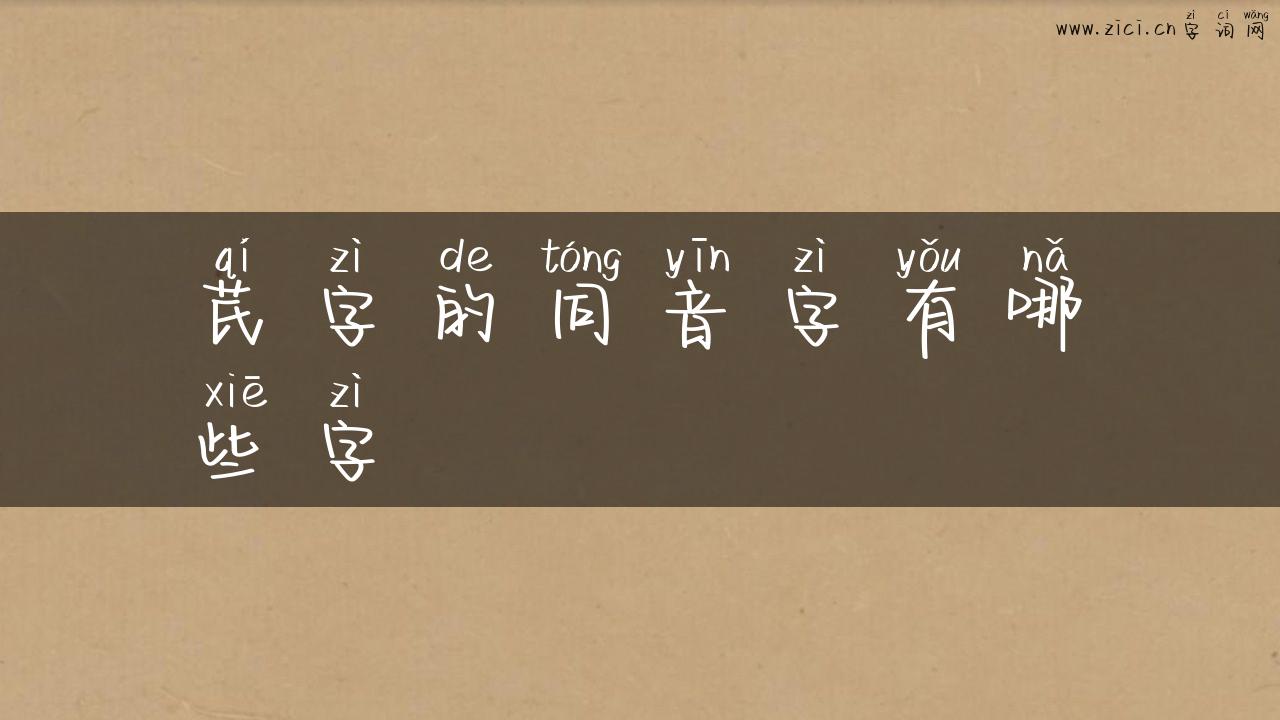 zì cí wǎng
www.zici.cn 字词网
qí zì de tóng yīn zì yǒu nǎ
芪字的同音字有哪
xiē zì
些字